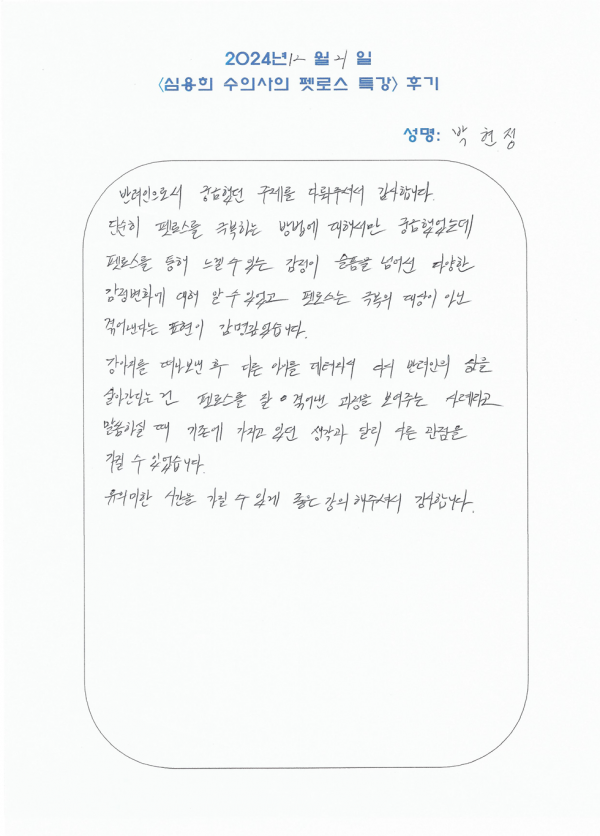 2024년 12월 21일
<심용희 수의사의 펫로스 특강> 후기
성명: 박현정
반려인으로서 궁금했던 주제를 다뤄주셔서 감사합니다.
단순히 펫로스를 극복하는 방법에 대해서만 궁금했었는데
펫로스를 통해 느낄 수 있는 감정이 슬픔을 넘어선 다양한
감정변화에 대해 알 수 있었고 펫로스는 극복의 대상이 아닌
겪어낸다는 표현이 감명깊었습니다.
강아지를 떠나보낸 후 다른 아이를 데려와서 다시 반려인의 삶을
살아간다는 건 펫로스를 잘 겪어낸 과정을 보여주는 사례라고
말씀하실 때 기존에 가지고 있던 생각과 달리 다른 관점을
가질 수 있었습니다.
유의미한 시간을 가질 수 있게 좋은 강의 해주셔서 감사합니다.